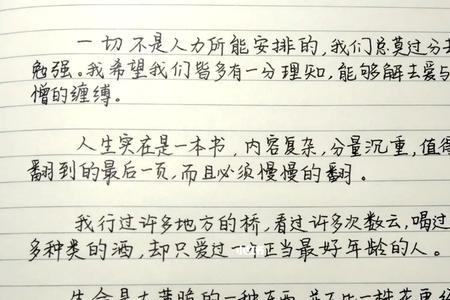 一切不是人力所能安排的,我们总莫过分去
勉强。我希望我们皆多有一分理知,能够解去爱与
憎的缠缚。
人生实在是一本书,内容复杂,分量沉重,值得
翻到的最后一页,而且必须慢慢的翻。
我行过许多地方的桥,看过许多次数云,喝过
多种类的酒,却只爱过一个正当最好年龄的人。
生命是太薄脆的一种东西,并不比一株花更经